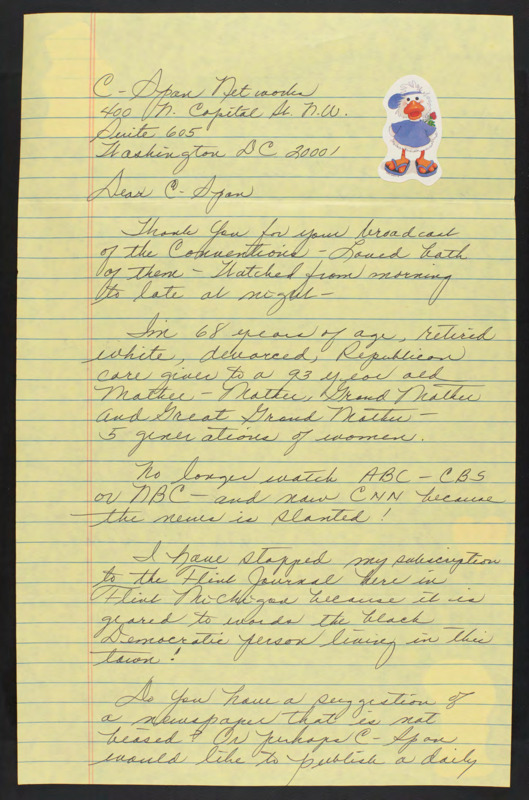 C-Span Networks
400 N. Capital St. N.W.
Suite 605
Washington DC 20001
Dear C-Span
Thank You for your broadcast
of the Conventions - Loved both
of them - Watched from morning
to late at night -
I'm 68 years of age, retired
white, devorced, Republican
care giver to a 93 year old
Mother - Mother, Grand Mother
and Great Grand Mother -
5 generations of women.
No longer watch ABC - CBS
or NBC - and now CNN because
the news is slanted!
I have stopped my subscription
to the Flint Journal here in
Flint Michigan because it is
geared to words the black
Democratic person living in this
town!
Do You have a suggestion of
a newspaper that is not
biased? Or perhaps C-Span
would like to publish a daily